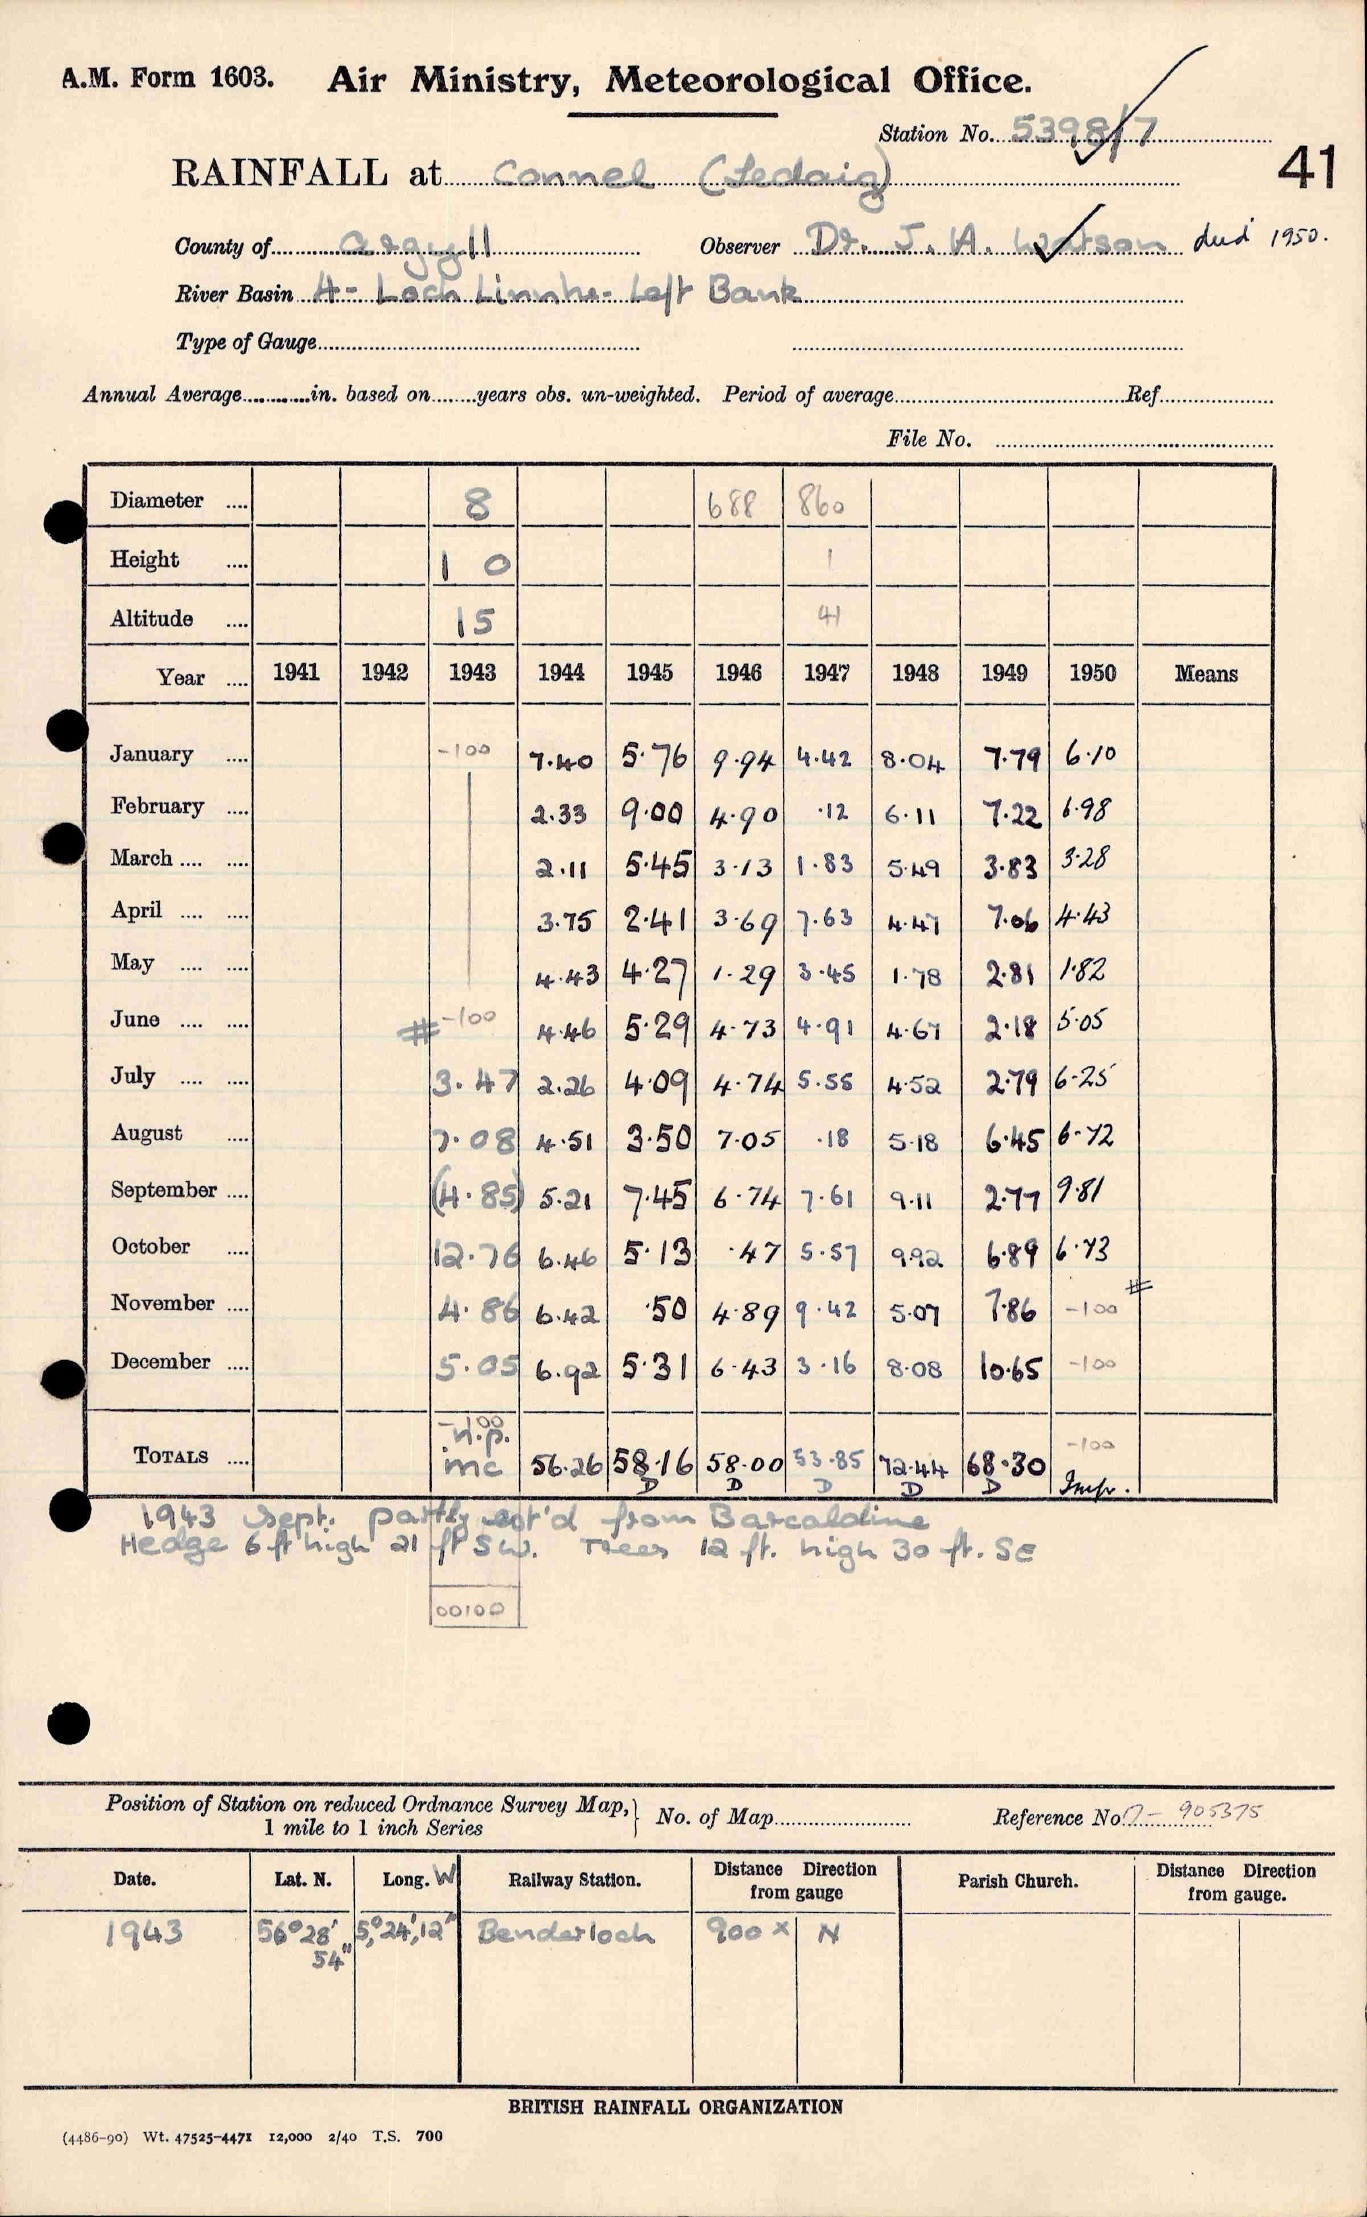 A.M. Form 1603. Air Ministry, Meteorological Office.
Station No. 5398/7
41
RAINFALL at Connel (Ledaig)
County of Argyll Observer Dr. J. A. Watson died 1950.
River Basin 4- Loch Linnhe- Left Bank
Type of Gauge
Annual Average in. based on years obs. un-weighted. Period of average Ref.
File No.
Diameter .... 8 688 860
Height .... 1 0 1
Altitude .... 15 41
Year .... 1941 1942 1943 1944 1945 1946 1947 1948 1949 1950 Means
January .... -100 7.40 5.76 9.94 4.42 8.04 7.79 6.10
February .... 2.33 9.00 4.90 .12 6.11 7.22 6.98
March .... .... 2.11 5.45 3.13 1.83 5.49 3.83 3.28
April .... .... 3.75 2.41 3.69 7.63 4.47 7.06 4.43
May .... .... 4.43 4.27 1.29 3.45 1.78 2.81 1.82
June .... .... # -100 4.46 5.29 4.73 4.91 4.67 2.18 5.05
July .... .... 3.47 2.26 4.09 4.74 5.55 4.52 2.79 6.25
August .... 7.08 4.51 3.50 7.05 .18 5.18 6.45 6.72
September .... (4.85) 5.21 7.45 6.74 7.61 9.11 2.77 9.81
October .... 12.76 6.46 5.13 .47 5.57 9.92 6.89 6.73
November .... 4.86 6.42 .50 4.89 9.42 5.07 7.86 -100 #
December .... 5.05 6.92 5.31 6.43 3.16 8.08 10.65 -100
-100
n.p.
TOTALS .... mc 56.26 58.16 58.00 53.85 72.44 68.30 -100
D D D D D Impf.
1943 Sept. partly est'd from Barcaldine
Hedge 6 ft high 21 ft SW. Trees 12 ft. high 30 ft. SE
00100
Position of Station on reduced Ordnance Survey Map,
1 mile to 1 inch Series
No. of Map Reference No. 17- 905375
Date. Lat. N. Long. W Railway Station. Distance Direction from gauge Parish Church. Distance Direction from gauge.
1943 56° 28' 54" 5° 24' 12" Benderloch 900 x N
BRITISH RAINFALL ORGANIZATION
(4486-90) Wt. 47525-4471 12,000 2/40 T.S. 700